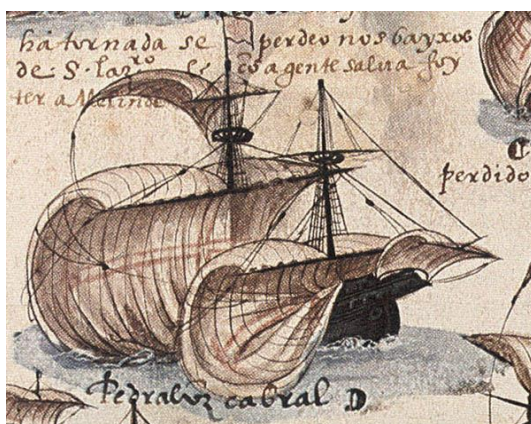 há tornada se perdeo nos bayxos
de S. lazro cõ a gente salua foy
ter a Melinde
perdido
Pedralvz cabral D